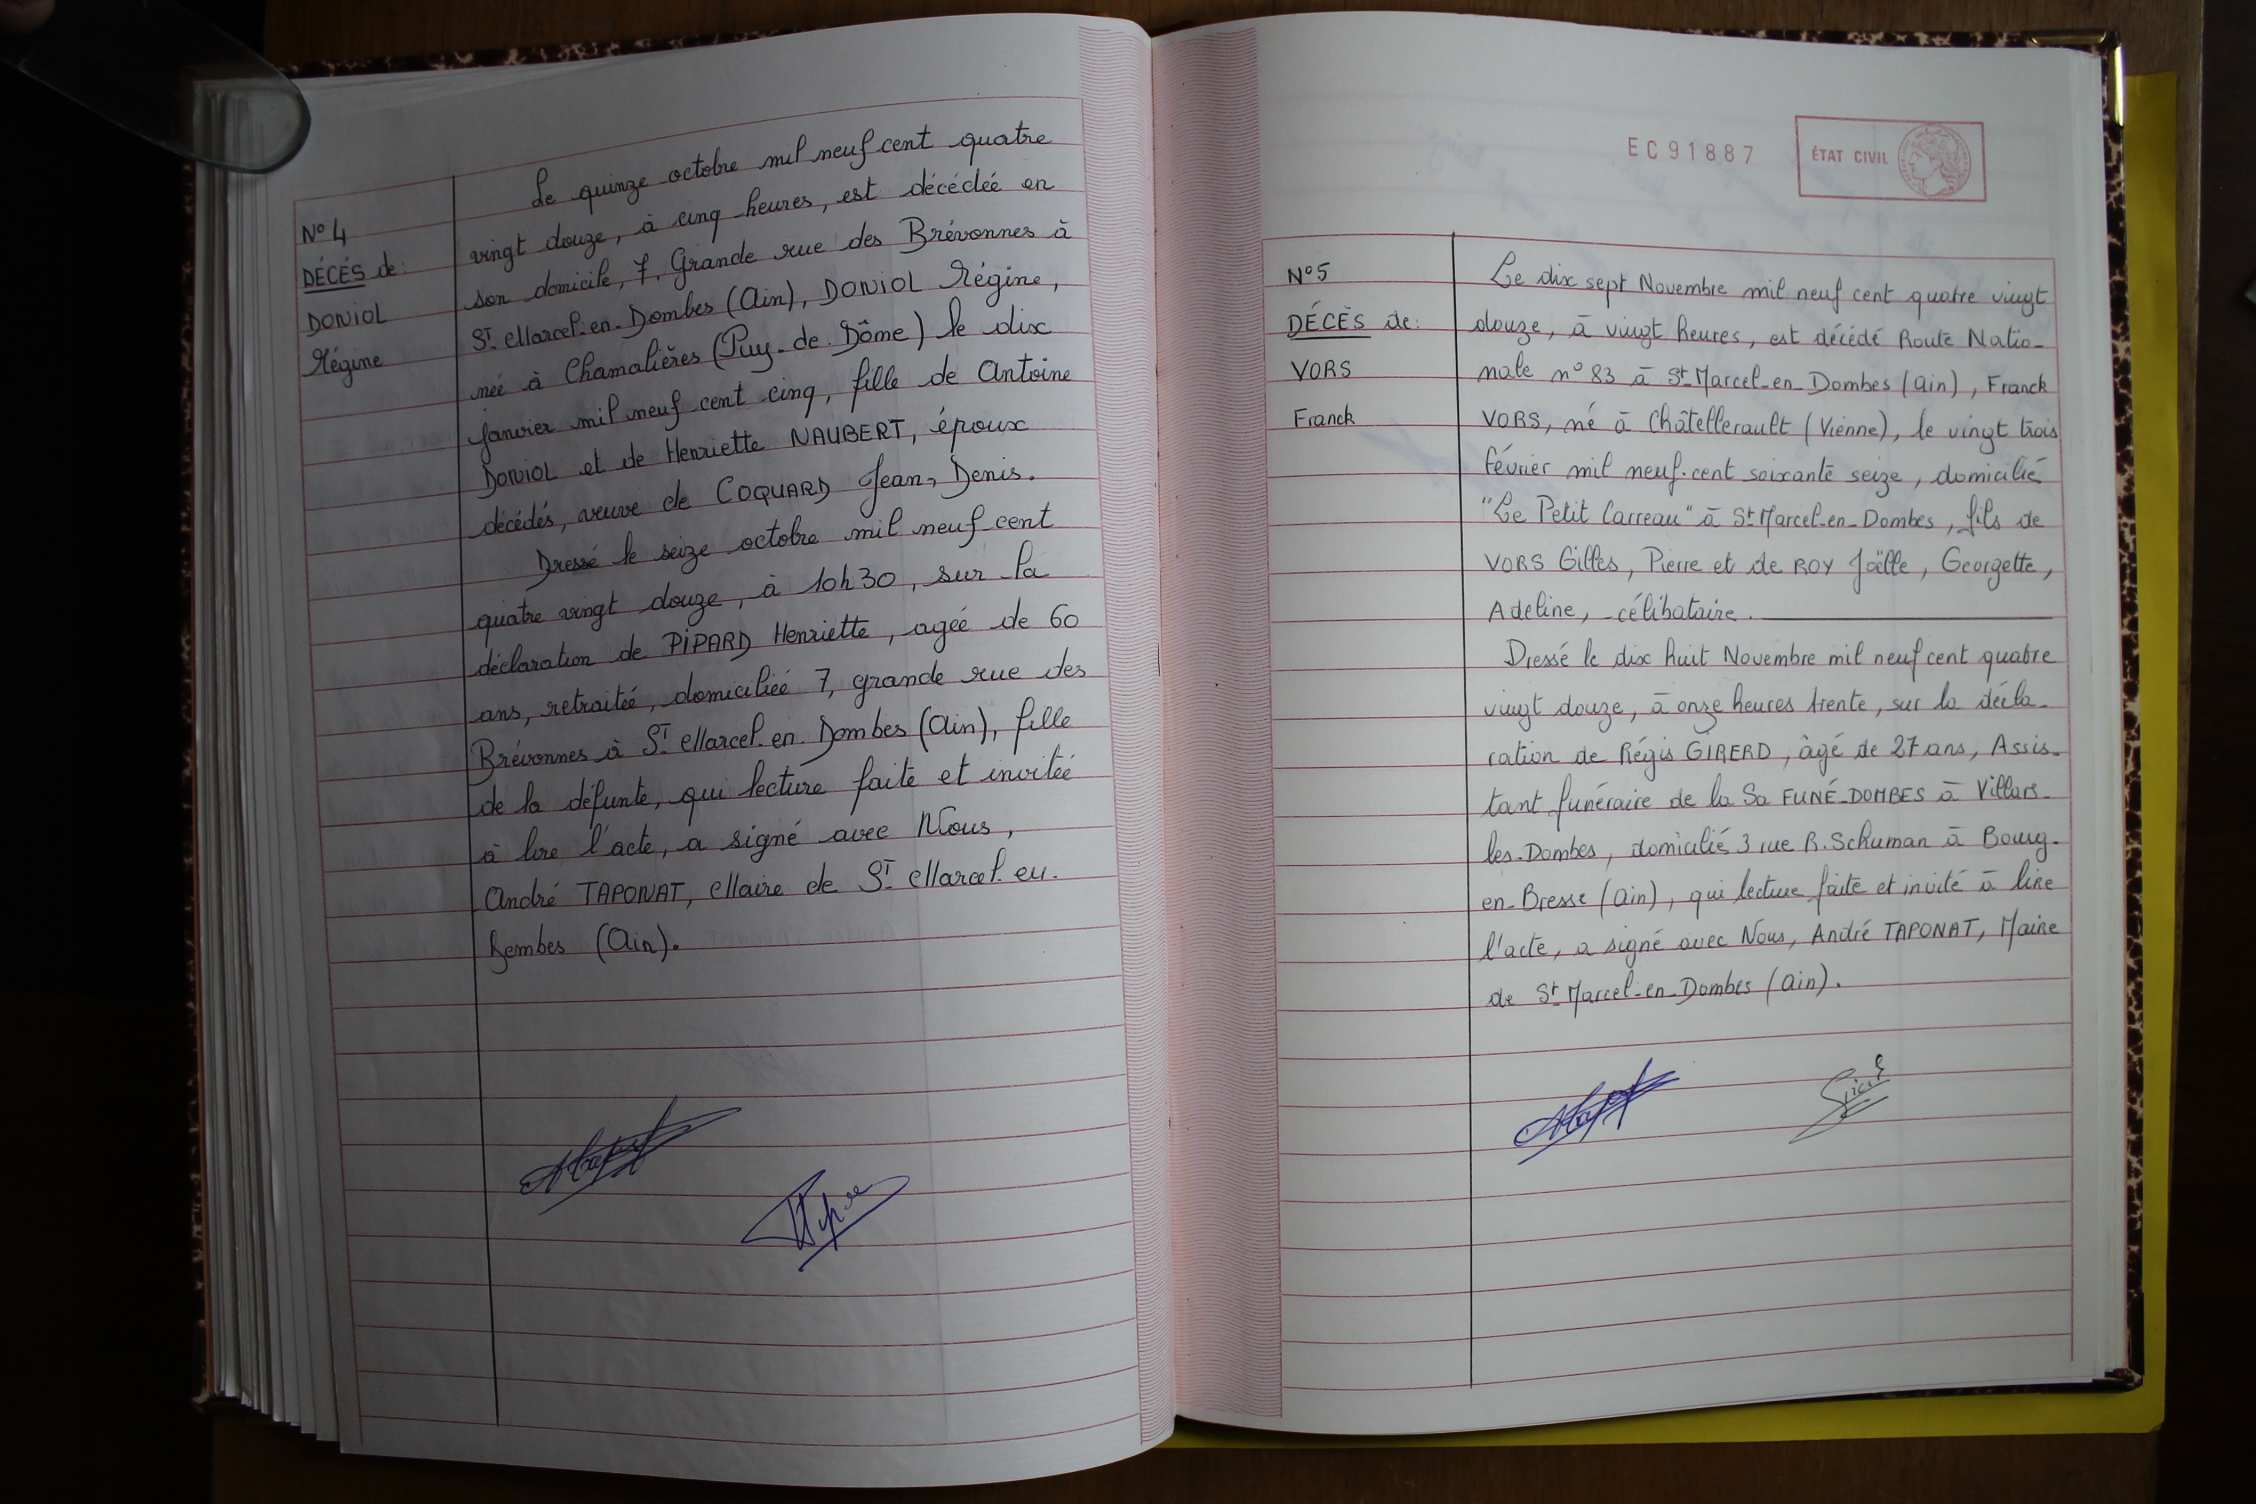 N° 4
DÉCÉS de:
DONIOL
Régine
Le quinze octobre mil neuf cent quatre
vingt douze, à cinq heures, est décédée en
son domicile, 7, Grande rue des Brévonnes à
St Marcel-en-Dombes (Ain), DONIOL Régine,
née à Chamalières (Puy-de-Dôme) le dix
janvier mil neuf cent cinq, fille de Antoine
DONIOL et de Henriette NAUBERT, époux
décédés, veuve de COQUARD Jean, Denis.
Dressé le seize octobre mil neuf cent
quatre vingt douze, à 10h30, sur la
déclaration de PIPARD Henriette, agée de 60
ans, retraitée, domiciliée 7, grande rue des
Brévonnes à St Marcel-en-Dombes (Ain), fille
de la défunte, qui lecture faite et invitée
à lire l'acte, a signé avec Nous,
André TAPONAT, Maire de St Marcel-en-
Dombes (Ain).
EC91887
ÉTAT CIVIL
N° 5
DÉCÈS de:
VORS
Franck
Le dix sept Novembre mil neuf cent quatre vingt
douze, à vingt heures, est décédé Route Natio-
nale n° 83 à St-Marcel-en-Dombes (Ain), Franck
VORS, né à Châtellerault (Vienne), le vingt trois
février mil neuf-cent soixante seize, domicilié
"Le Petit Carreau" à St Marcel-en-Dombes, fils de
VORS Gilles, Pierre et de ROY Joëlle, Georgette,
Adeline, célibataire.
Dressé le dix huit Novembre mil neuf cent quatre
vingt douze, à onze heures trente, sur la décla-
ration de Régis GIRERD, âgé de 27 ans, Assis-
tant funéraire de la Sa FUNÉ-DOMBES à Villars-
les-Dombes, domicilié 3 rue R. Schuman à Bourg-
en-Bresse (Ain), qui lecture faite et invité à lire
l'acte, a signé avec Nous, André TAPONAT, Maire
de St-Marcel-en-Dombes (Ain).